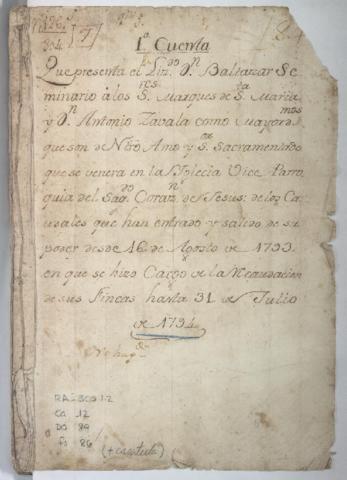 1a Cuenta
Que presenta el Liz.do Dn Baltazar Se
minario à los S.res Marques de S.ta Maria
y Dn Antonio Zavala como Mayord.mos
que son de Ntrò Amo y S.or Sacramentado
que se venera en la Yglecia Vice Parro
quia del Sag.do Coraz.n de Jesus: de los Ca
udales que han entrado y salido de su
poder desde 16 de Agosto de 1793.
en que se hizo Cargo de la Recaudacion
de sus Fincas hasta 31 de Julio
de 1794.
Ca 12
DO 89
fs 86
(+ caratula)